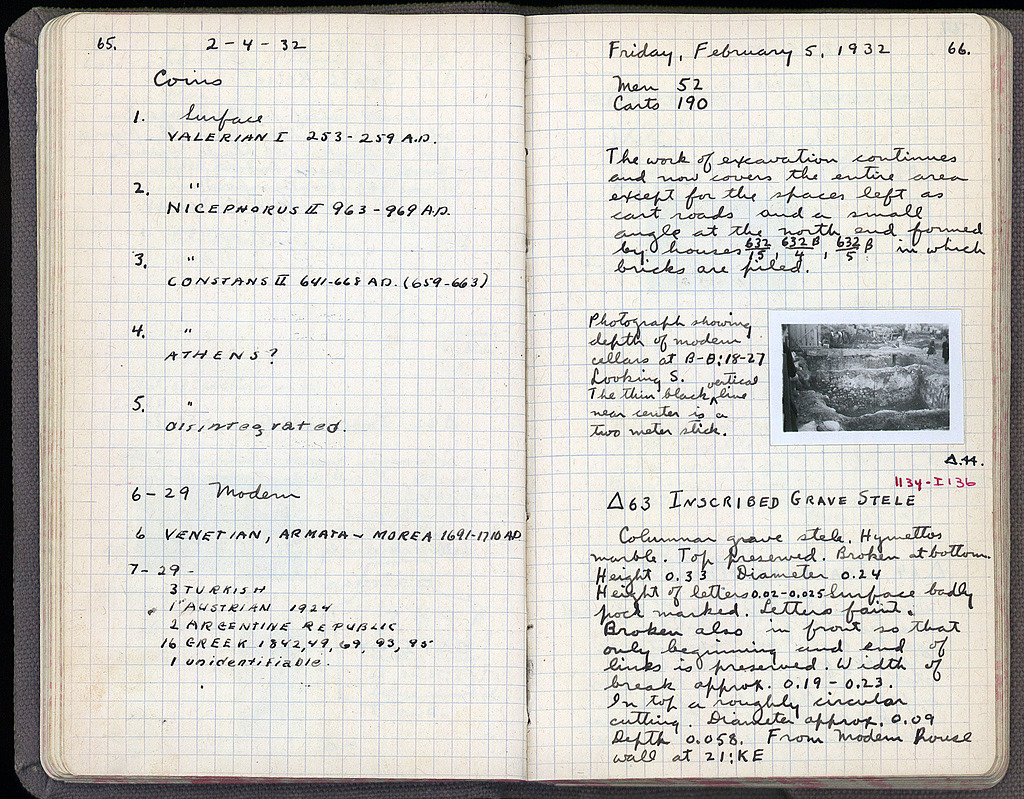 65. 2-4-32
Coins
1. Surface
VALERIAN I 253-259 A.D.
2. "
NICEPHORUS II 963-969 A.D.
3. "
CONSTANS II 641-668 A.D. (659-663)
4. "
ATHENS?
5. "
disintegrated.
6-29 Modern
6 VENETIAN, ARMATA ~ MOREA 1691-1710 AD
7-29-
3 TURKISH
1 AUSTRIAN 1924
2 ARGENTINE REPUBLIC
16 GREEK 1842, 49, 69, 93, 95
1 unidentifiable.
Friday, February 5, 1932 66.
Men 52
Carts 190
The work of excavation continues
and now covers the entire area
except for the spaces left as
cart roads and a small
angle at the north end formed
by houses 632/15, 632B/4, 632/5 B in which
bricks are piled.
Photograph showing
depth of modern
cellars at B-B:18-27
Looking S.
The thin black vertical line
near center is a
two meter stick.
Δ.44.
1134-I136
Δ63 INSCRIBED GRAVE STELE
Columnar grave stele. Hymettos
marble. Top preserved. Broken at bottom.
Height 0.33 Diameter 0.24
Height of letters 0.02-0.025 Surface badly
pock marked. Letters faint.
Broken also in front so that
only beginning and end of
lines is preserved. Width of
break approx. 0.19-0.23.
In top a roughly circular
cutting. Diameter approx. 0.09
Depth 0.058. From Modern House
wall at 21:KE